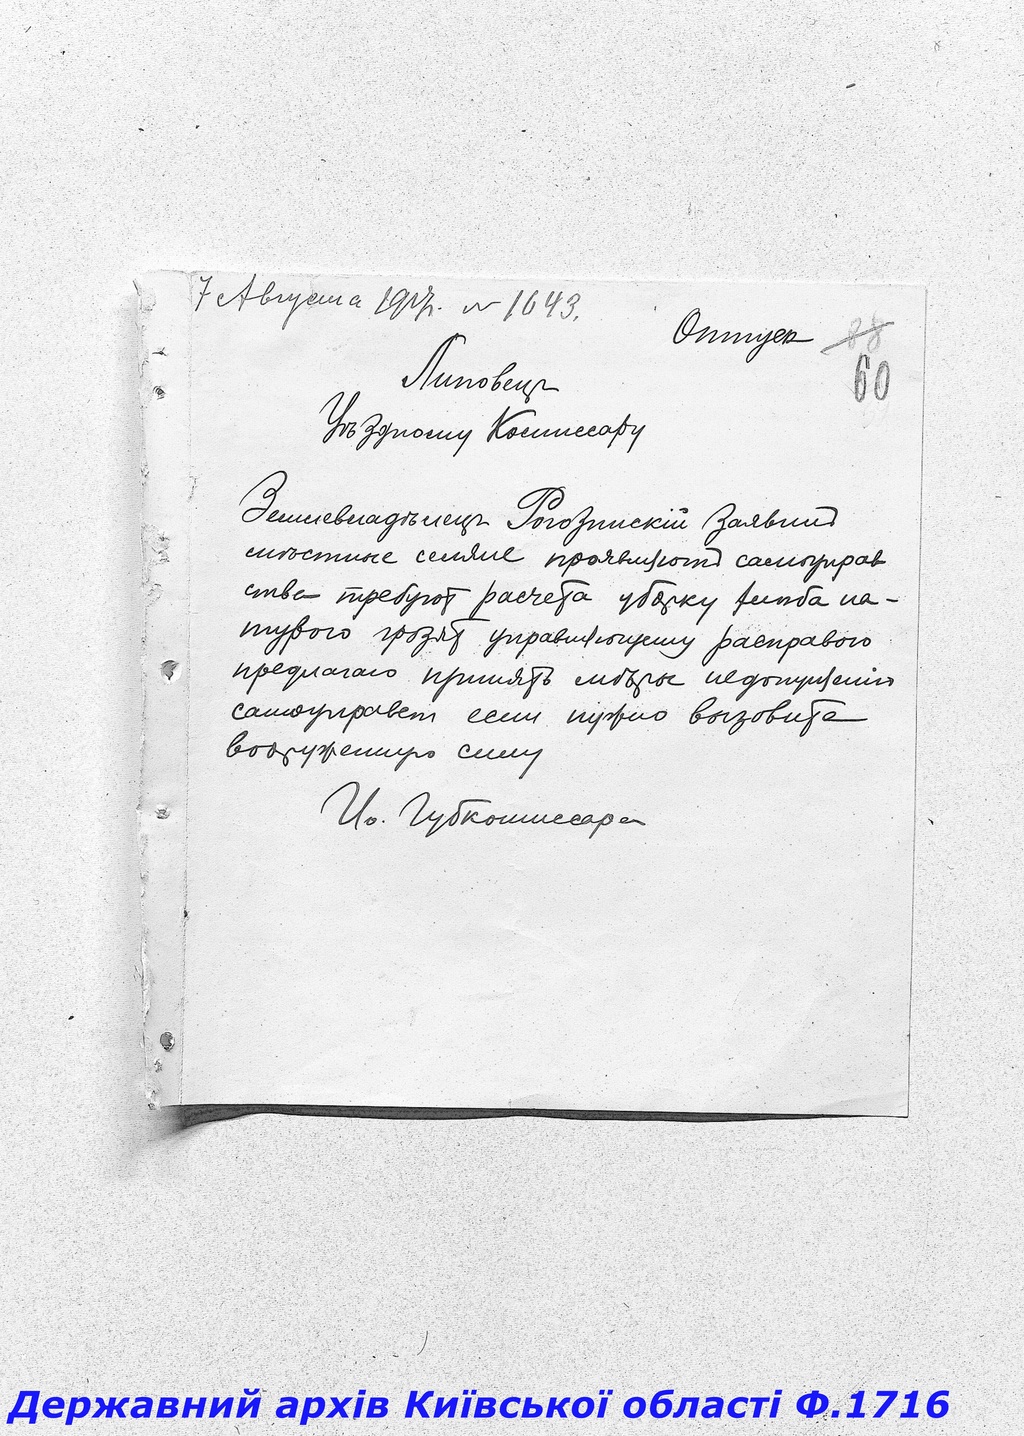 7 Августа 1917г. № 1643.
Отпуск 88
60
Липовец
Уѣздному Комиссару
Землевладѣлец Рогозинскій заявил
мѣстные селяне проявляют самоуправ
ства требуют расчета уборку хлѣба на-
турого грозят управляющему расправого
предлагаю принять мѣры недопущенію
самоуправств если нужно вызовите
вооруженную силу
Ио. Губкомиссара
Державний архів Київської області Ф.1716